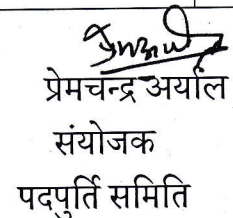 प्रेमचन्द्र अर्याल
संयोजक
पदपुर्ति समिति